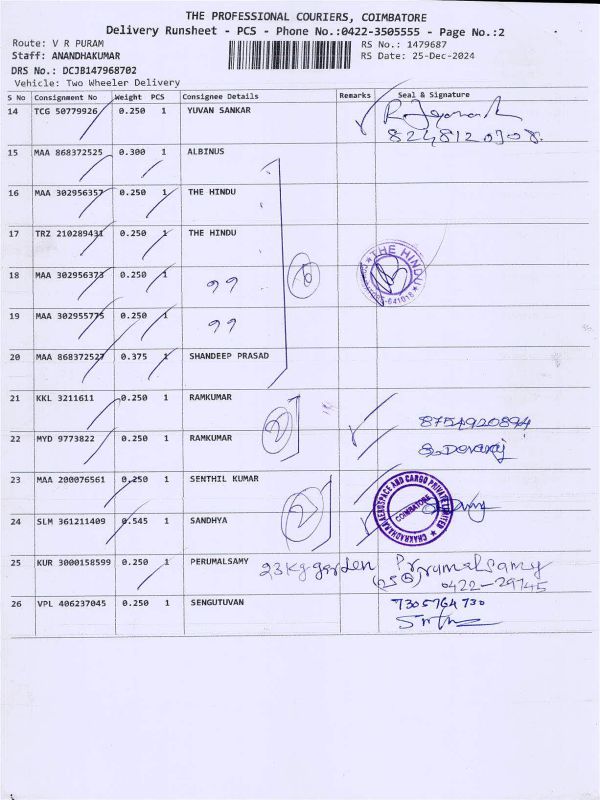 THE PROFESSIONAL COURIERS, COIMBATORE
Delivery Runsheet - PCS - Phone No.:0422-3505555 - Page No.:2
Route: V R PURAM
RS No.: 1479687
Staff: ANANDHAKUMAR
RS Date: 25-Dec-2024
DRS No.: DCJB147968702
Vehicle: Two Wheeler Delivery
S No Consignment No Weight PCS Consignee Details Remarks Seal & Signature
14 TCG 50779926 0.250 1 YUVAN SANKAR
15 MAA 868372525 0.300 1 ALBINUS
16 MAA 302956357 0.250 1 THE HINDU
17 TRZ 210289431 0.250 1 THE HINDU
THE HINDU
18 MAA 302956373 0.250 1 ,,
19 MAA 302955775 0.250 1 ,,
20 MAA 868372527 0.375 1 SHANDEEP PRASAD
21 KKL 3211611 0.250 1 RAMKUMAR
8754920894
22 MYD 9773822 0.250 1 RAMKUMAR 2
S. Devaraj
23 MAA 200076561 0.250 1 SENTHIL KUMAR
CHAKRADHARA AEROSPACE AND CARGO PRIVATE LIMITED
COIMBATORE
24 SLM 361211409 0.545 1 SANDHYA 2
25 KUR 3000158599 0.250 1 PERUMALSAMY 23 kg garden Perumalsamy
0422-29745
26 VPL 406237045 0.250 1 SENGUTUVAN 7305764730